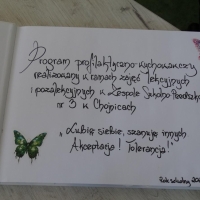 Program profilaktyczno-wychowawczy
realizowany w ramach zajęć lekcyjnych
i pozalekcyjnych w Zespole Szkolno
nr 3 w Chojnicach
„Lubię siebie, szanuję innych
Akceptacja! Tolerancja!"
Rok szkolny